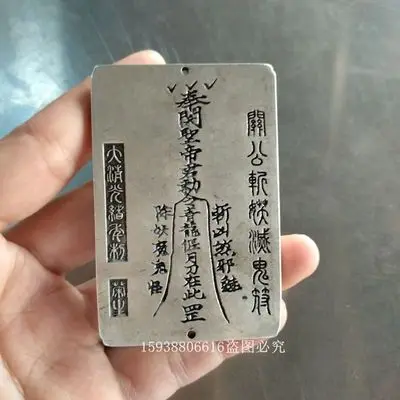 關公斬妖滅鬼符
奉關聖帝君勅令青龍偃月刀在此罡
斬凶煞邪魅
除妖魔鬼怪
大清光緒年
15938806616盗图必究